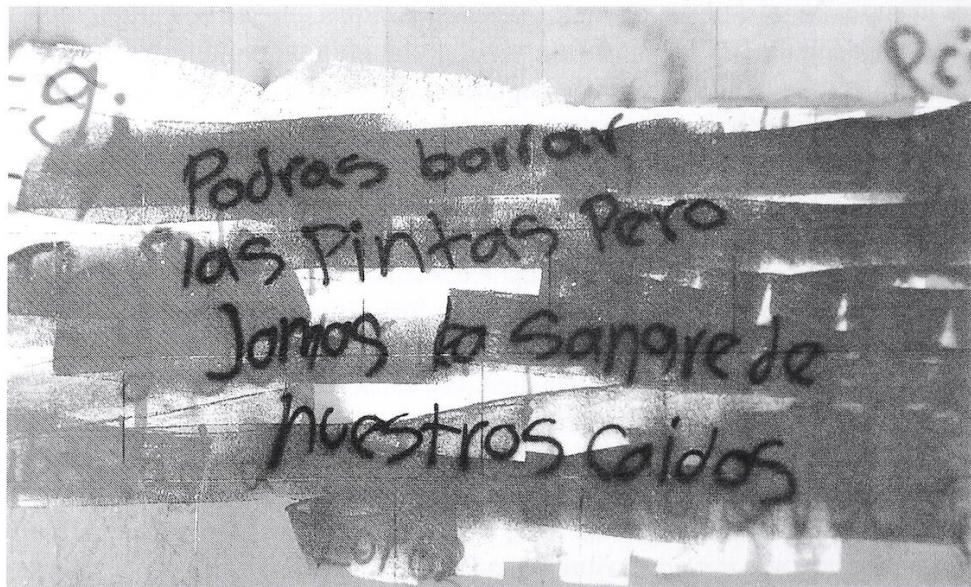 g.
Pc
Podras borrar
las Pintas Pero
Jamas la sangre de
nuestros Caidos